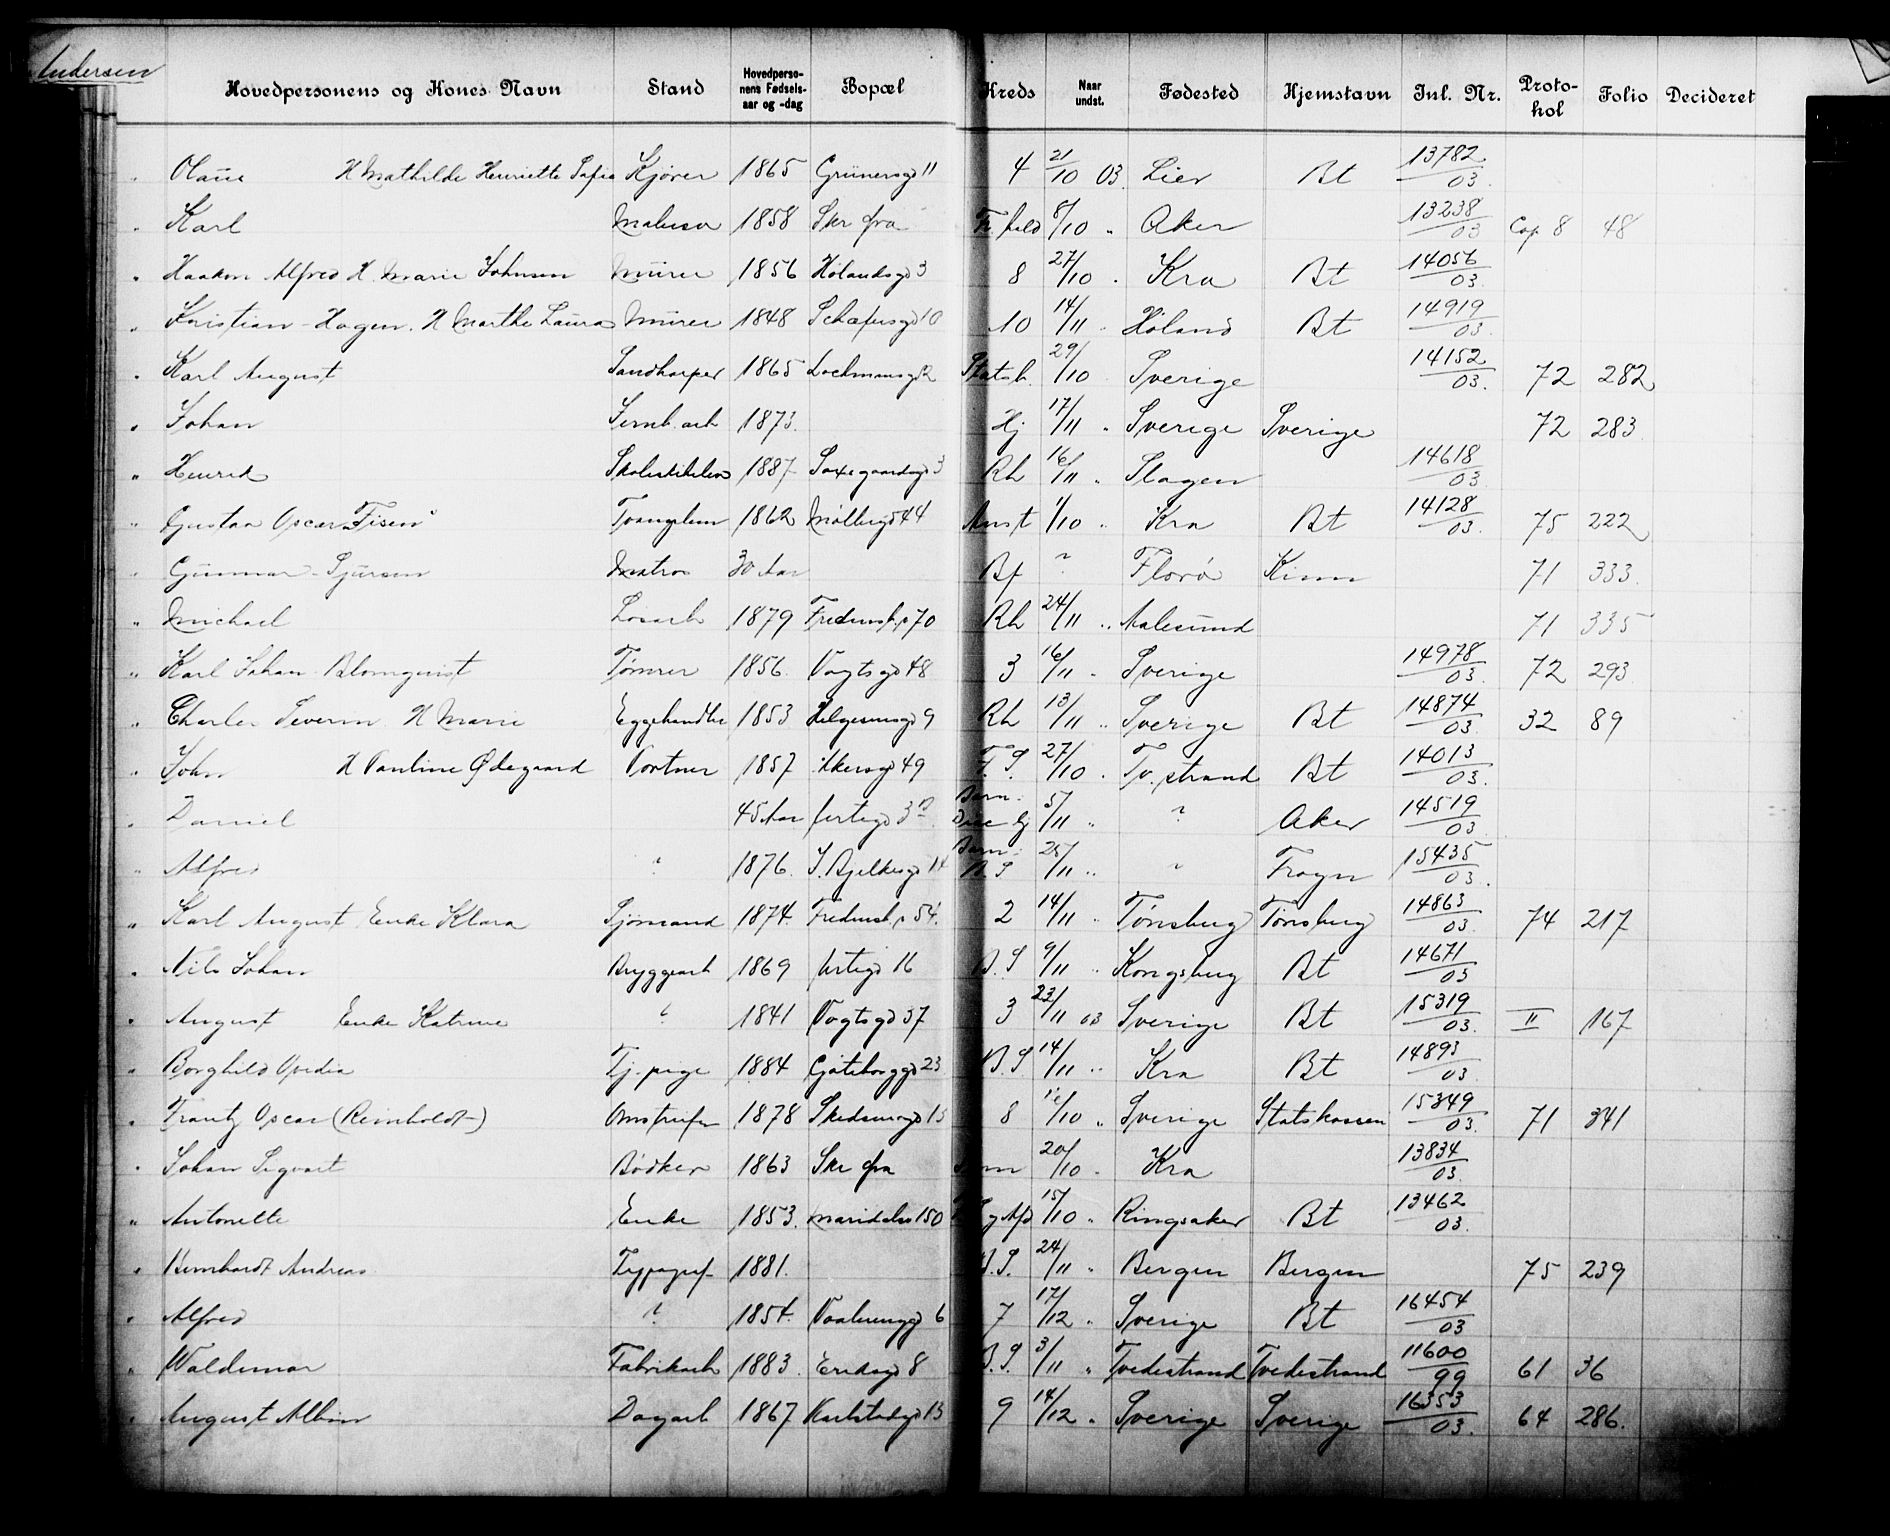 Andersen
Hovedpersonens og Kones Navn Stand Hovedpersonens Fødselsaar og -dag Bopæl Kreds Naar undst. Fødested Hjemstavn Inl. Nr. Protokol Folio Decideret
" Olaus H Mathilde Henriette Sofie Kjører 1865 Grünersgd 11 4 21/10 03. Lier Bt 13782/03.
" Karl Maleren 1858 Skr fra 8/10 " Aker 13238/03 Cop 8 48
" Haakon Alfred H. Marie Johnsen Murer 1856 Hølandsgd 3 8 27/10 " Kra Bt 14056/03.
" Kristian Hagen. H Marthe Laura Murer 1848 Schæfersgd 10 10 14/11 " Høland Bt 14919/03.
" Karl August 1865 Lochmansgd 2 29/10 Sverige 14152/03. 72 282
" Johan Jernb. arb 1873. Hj 17/11 " Sverige Sverige 72 283
" Henrik 1887 Saxegaardsgd 3 Rh 16/11 " Slagen 14618/03
" Gustav Oscar 1862 Møllergd 44 Anst 1/10 " Kra Bt 14128/03. 75 222
" Gunnar Sjursen Matros 30 Aar Bf ? Florø Kinn 71 333
" Michael Løsarb 1879 70 Rh 24/11 " Aalesund 71 335
" Karl Johan Blomquist Tømrer 1856. Vogtsgd 48 3 16/11 " Sverige 14978/03. 72 293
" Charles Severin H Marie Eggehandler 1853 Helgesensgd 9 Rh 13/11 " Sverige Bt 14874/03 32 89
" John H Pauline Ødegaard Portner 1857 Akersgd 49 F. S. 27/10 " Tv. strand Bt 14013/03.
" Daniel 45 Aar 5/11 " ? Aker 14519/03
" Alfred ? 1876. J. Bjelkesgd 14 25/11 " " Frogn 15435/03.
" Karl August Enke Klara Sjømand 1874. 54. 2 14/11 " Tønsberg Tønsberg 14863/03. 74 217
" Nils Johan Bryggearb 1869 16 B. S 9/11 " Kongsberg Bt 14671/03
" August Enke Katrine ? 1841 Vogtsgd 37 3 23/11 03 Sverige Bt 15319/03. II 167
" Borghild Ovidia Tj. pige 1884 Gøteborggd 23 B. S. 14/11 " Kra Bt 14893/03
" Frantz Oscar (Reinholdt) 1878 Skedsmogd 15 8 /10 " Sverige Statskassen 15349/03. 71 341
" Johan Sigvart Bødker 1863 Skr fra 20/10 " Kra 13834/03.
" Antonette Enke 1853. Maridalsv 150 15/10 " Ringsaker Bt 13462/03.
" Bernhardt Andreas Typograf 1881. B. S. 24/11 " Bergen Bergen 75 239
" Alfred ? 1854. Vaalerenggd 6 7 17/12 " Sverige Bt 16454/03
" Waldemar Fabrikarb 1883. 8 B. S. 3/11 " Tvedestrand Tvedestrand 11600/99 61 36
" August Albin Dagarb 1867 Karlstadgd 13 9 14/12 " Sverige Sverige 16353/03. 64 286.